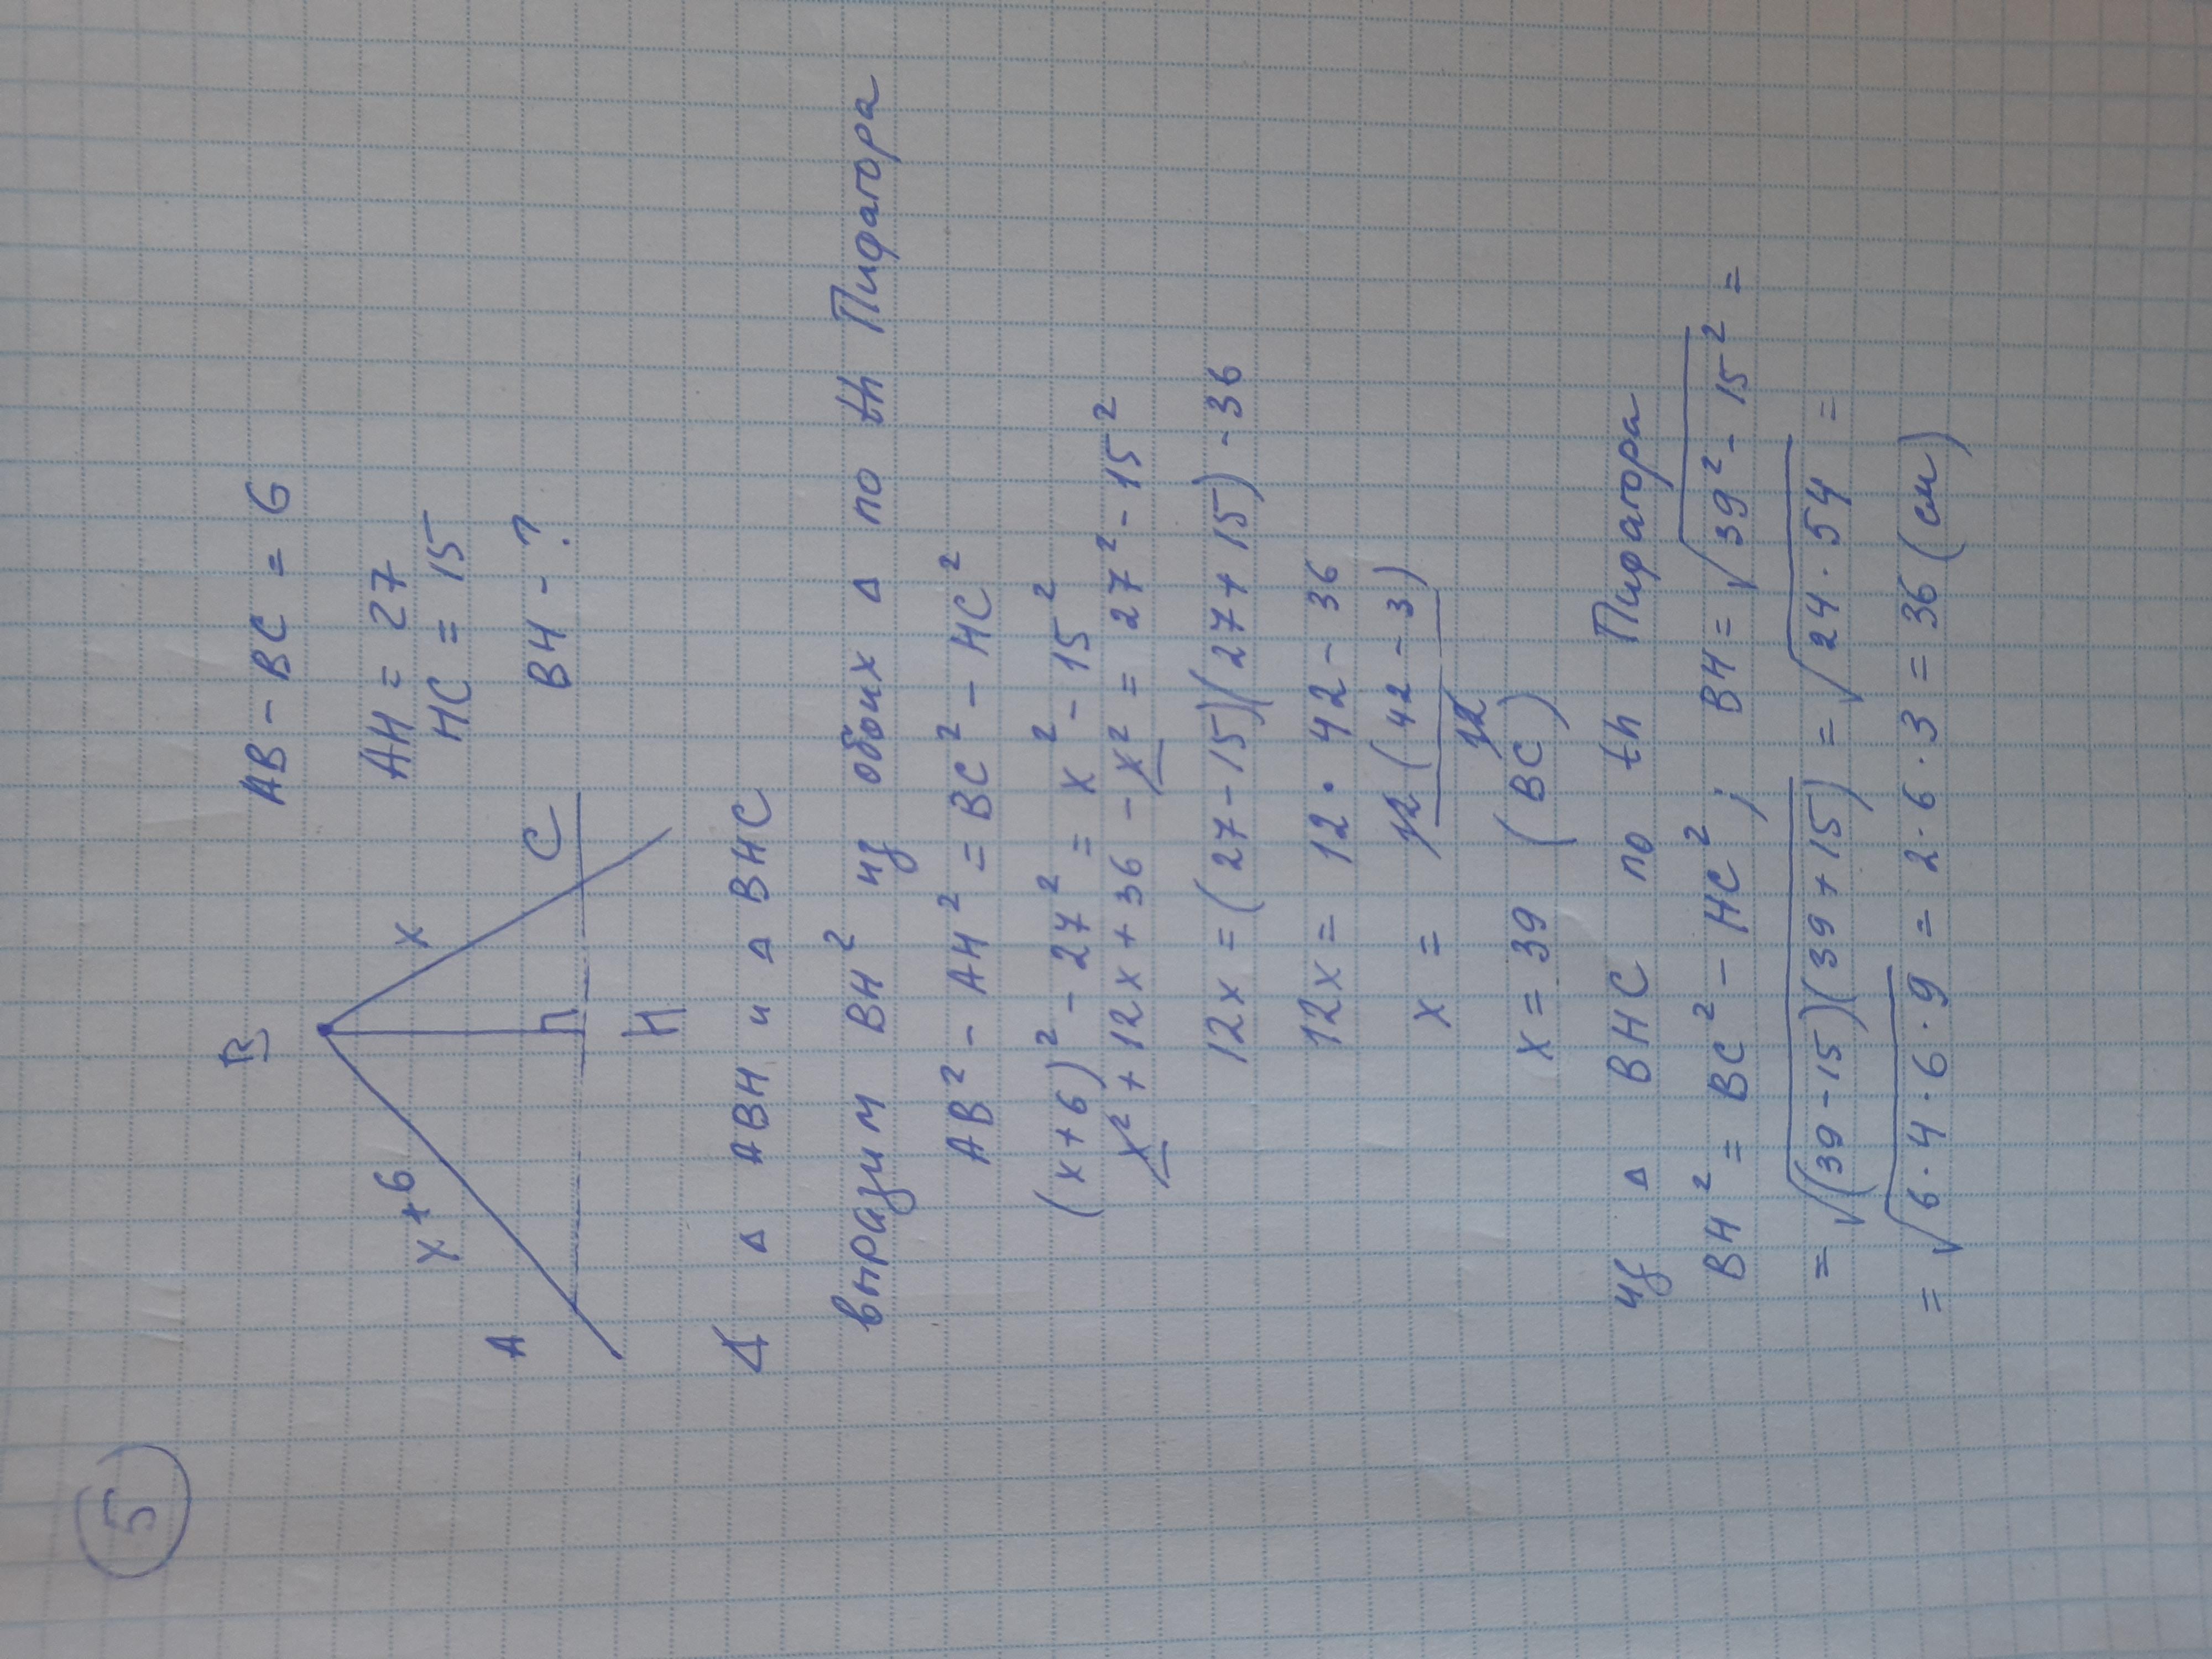 5
AB - BC = 6
AH = 27
HC = 15
BH - ?
B
x + 6
x
A
C
H
Δ ABH и Δ BHC
выразим BH² из обоих Δ по th Пифагора
AB² - AH² = BC² - HC²
(x + 6)² - 27² = x² - 15²
x² + 12x + 36 - x² = 27² - 15²
12x = (27 - 15)(27 + 15) - 36
12x = 12 · 42 - 36
x = 12 (42 - 3) / 12
x = 39 (BC)
из Δ BHC по th Пифагора
BH² = BC² - HC²; BH = √39² - 15² =
= √(39 - 15)(39 + 15) = √24 · 54 =
= √6 · 4 · 6 · 9 = 2 · 6 · 3 = 36 (см)